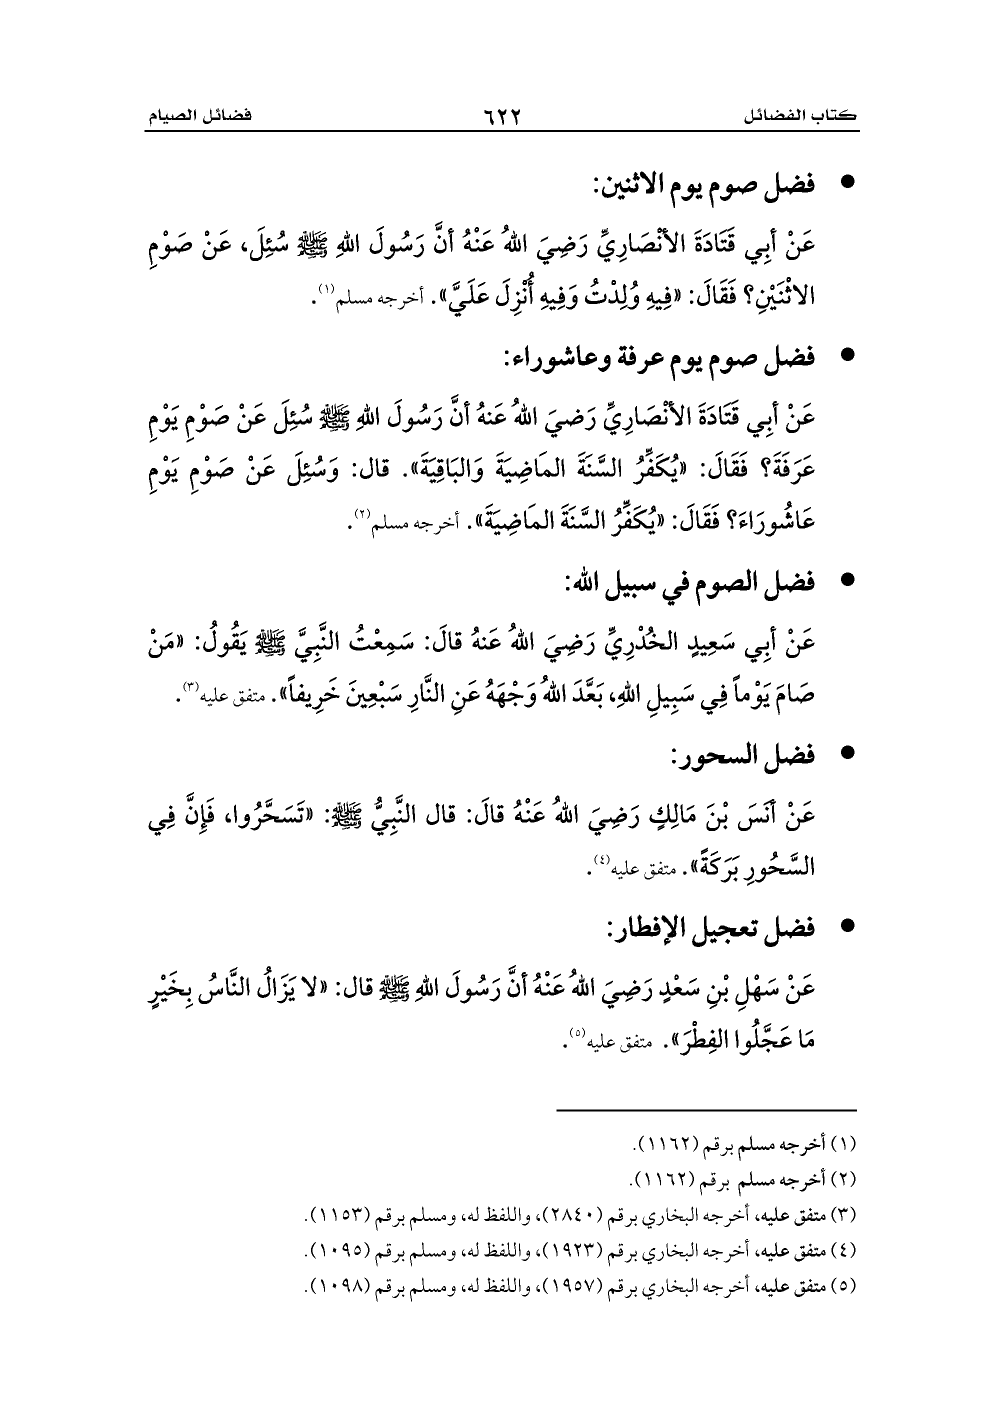 كتاب الفضائل ٦٢٢ فضائل الصيام
• فضل صوم يوم الاثنين:
عَنْ أبِي قَتَادَةَ الأنْصَارِيِّ رَضِيَ اللهُ عَنْهُ أنَّ رَسُولَ اللهِ ﷺ سُئِلَ، عَنْ صَوْمِ
الاثْنَيْنِ؟ فَقَالَ: «فِيهِ وُلِدْتُ وَفِيهِ أُنْزِلَ عَلَيَّ». أخرجه مسلم(١).
• فضل صوم يوم عرفة وعاشوراء:
عَنْ أبِي قَتَادَةَ الأنْصَارِيِّ رَضيَ اللهُ عَنهُ أنَّ رَسُولَ اللهِ ﷺ سُئِلَ عَنْ صَوْمِ يَوْمِ
عَرَفَةَ؟ فَقَالَ: «يُكَفِّرُ السَّنَةَ المَاضِيَةَ وَالبَاقِيَةَ». قال: وَسُئِلَ عَنْ صَوْمِ يَوْمِ
عَاشُورَاءَ؟ فَقَالَ: «يُكَفِّرُ السَّنَةَ المَاضِيَةَ». أخرجه مسلم(٢).
• فضل الصوم في سبيل الله:
عَنْ أبِي سَعِيدٍ الخُدْرِيِّ رَضِيَ اللهُ عَنهُ قالَ: سَمِعْتُ النَّبِيَّ ﷺ يَقُولُ: «مَنْ
صَامَ يَوْماً فِي سَبِيلِ اللهِ، بَعَّدَ اللهُ وَجْهَهُ عَنِ النَّارِ سَبْعِينَ خَرِيفاً». متفق عليه(٣).
• فضل السحور:
عَنْ أنَسَ بْنَ مَالِكٍ رَضِيَ اللهُ عَنْهُ قالَ: قال النَّبِيُّ ﷺ: «تَسَحَّرُوا، فَإِنَّ فِي
السَّحُورِ بَرَكَةً». متفق عليه(٤).
• فضل تعجيل الإفطار:
عَنْ سَهْلِ بْنِ سَعْدٍ رَضِيَ اللهُ عَنْهُ أنَّ رَسُولَ اللهِ ﷺ قال: «لا يَزَالُ النَّاسُ بِخَيْرٍ
مَا عَجَّلُوا الفِطْرَ». متفق عليه(٥).
(١) أخرجه مسلم برقم (١١٦٢).
(٢) أخرجه مسلم برقم (١١٦٢).
(٣) متفق عليه، أخرجه البخاري برقم (٢٨٤٠)، واللفظ له، ومسلم برقم (١١٥٣).
(٤) متفق عليه، أخرجه البخاري برقم (١٩٢٣)، واللفظ له، ومسلم برقم (١٠٩٥).
(٥) متفق عليه، أخرجه البخاري برقم (١٩٥٧)، واللفظ له، ومسلم برقم (١٠٩٨).